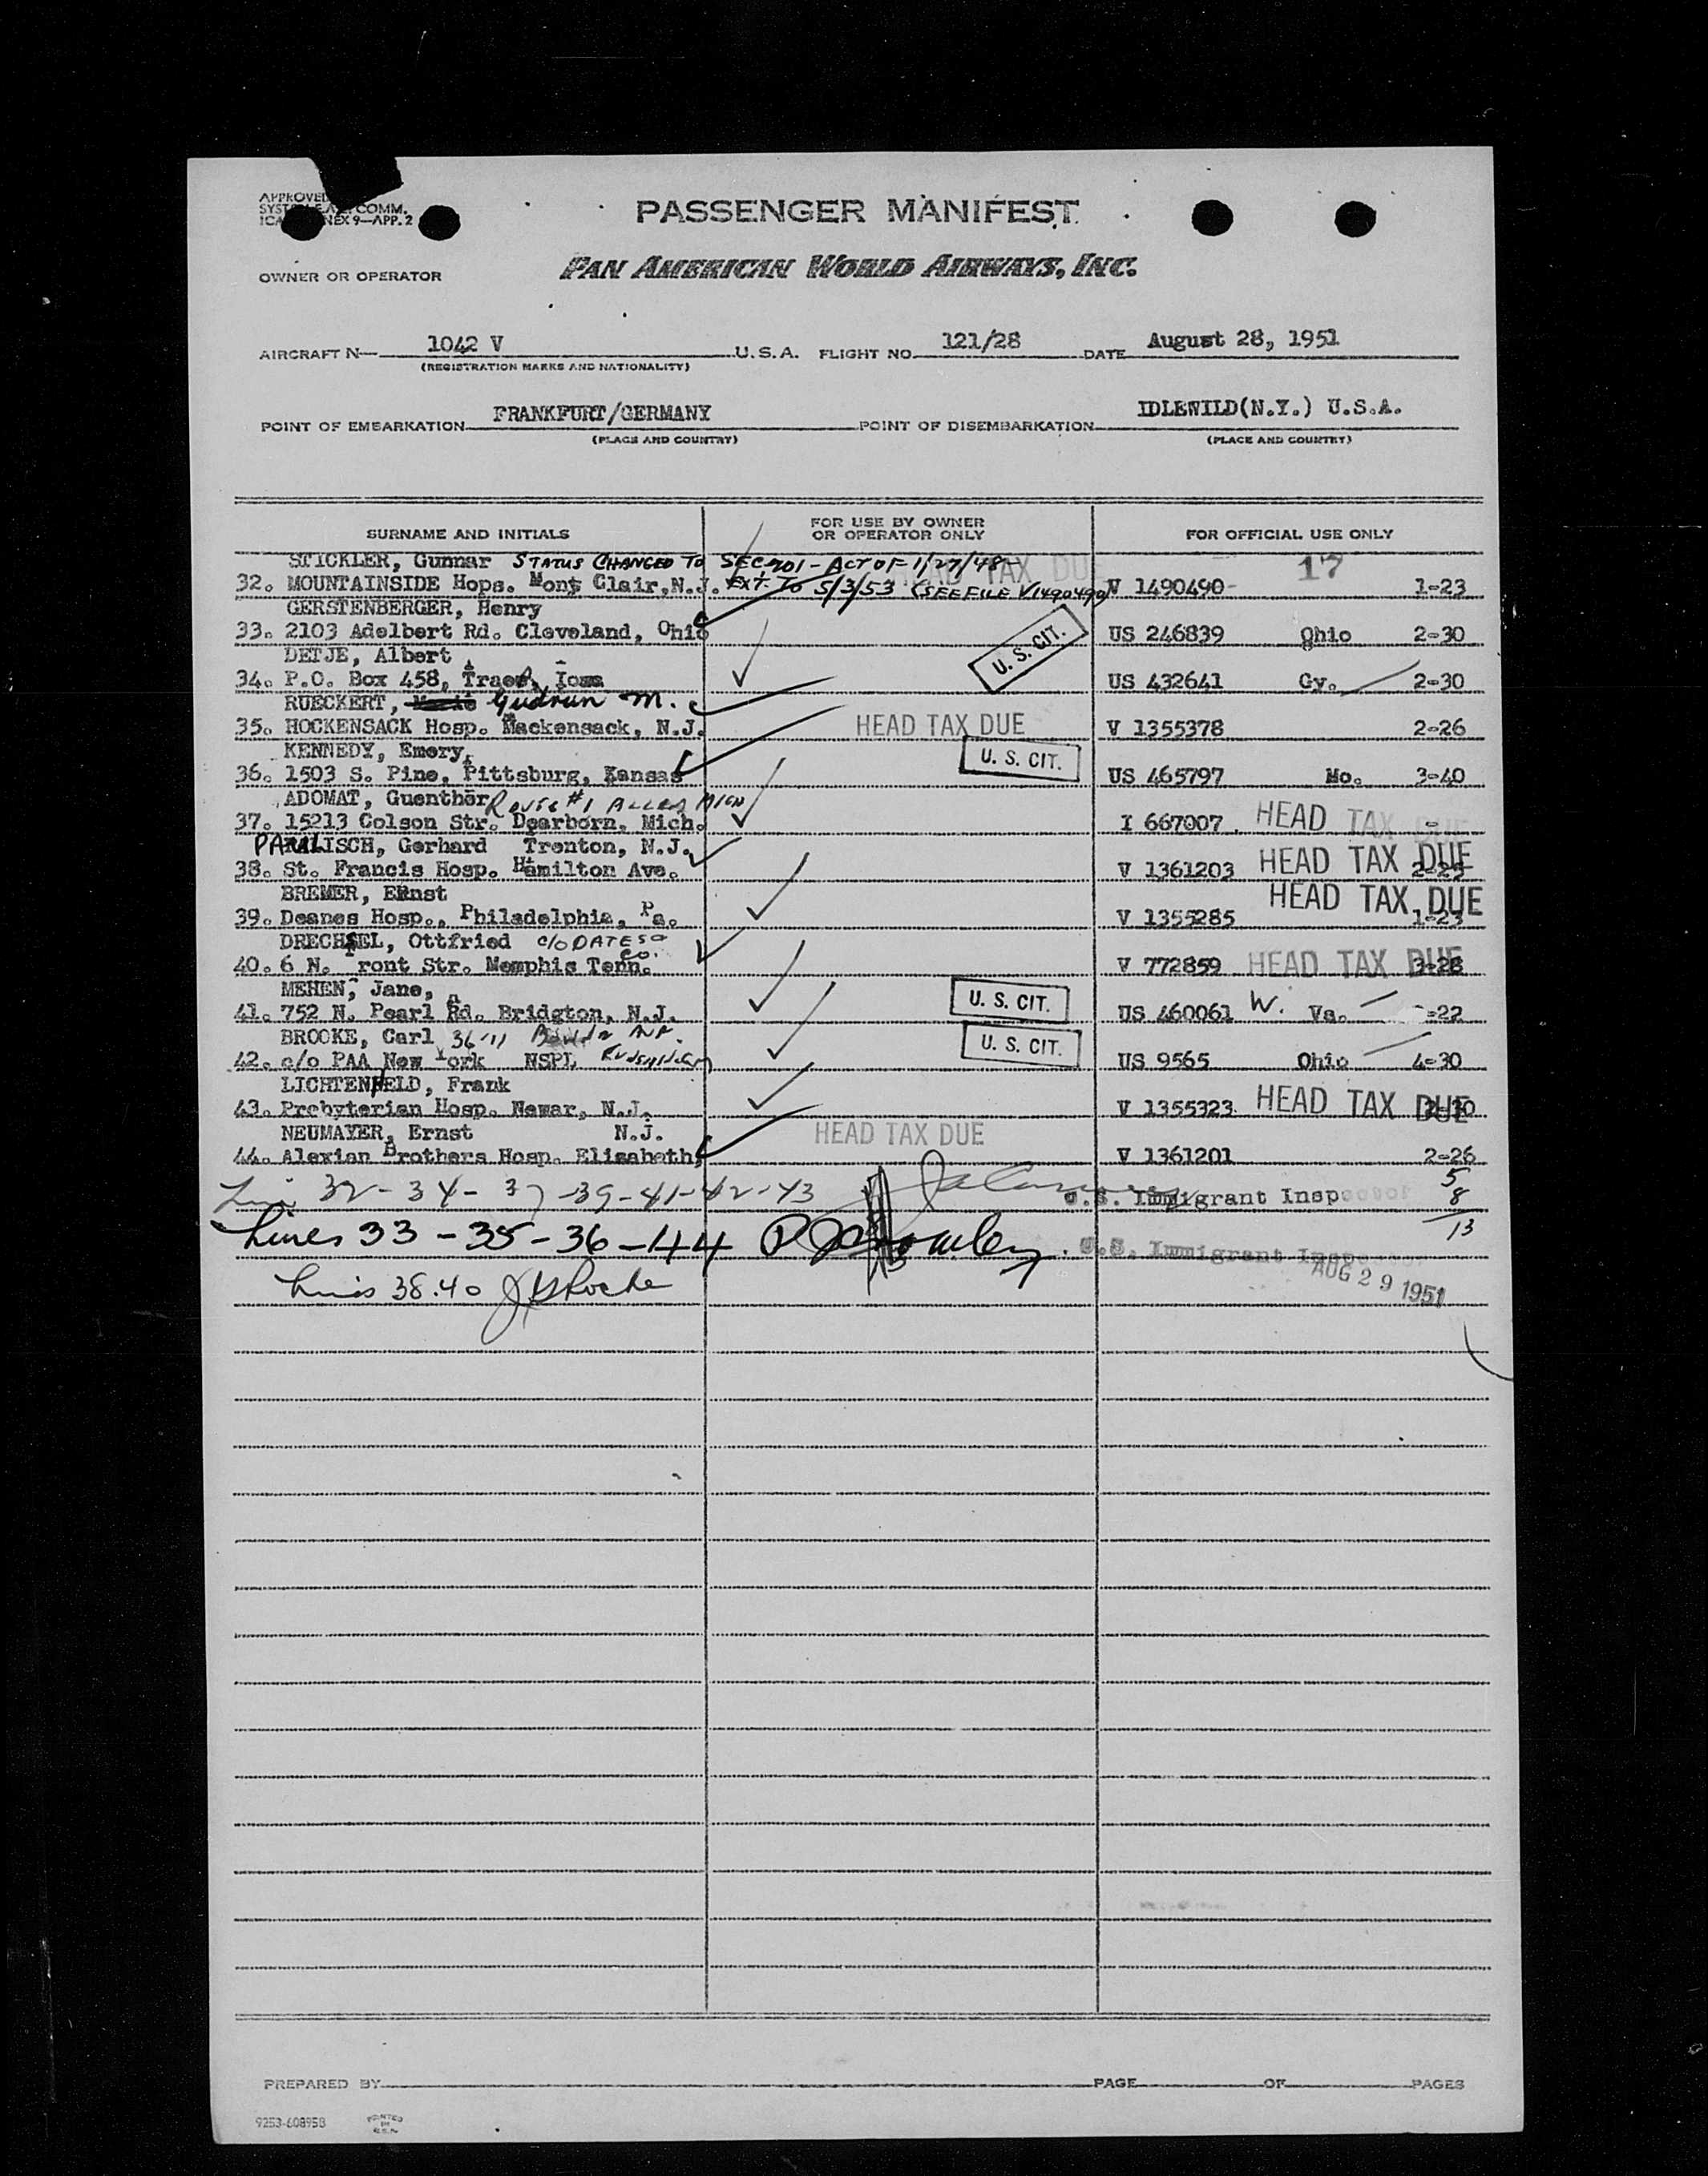 APPROVED
SYST COMM.
ICA NEX 9—APP. 2
PASSENGER MANIFEST
OWNER OR OPERATOR
PAN AMERICAN WORLD AIRWAYS, INC.
AIRCRAFT N— 1042 V U.S.A. FLIGHT NO. 121/28 DATE August 28, 1951
(REGISTRATION MARKS AND NATIONALITY)
POINT OF EMBARKATION FRANKFURT/GERMANY POINT OF DISEMBARKATION IDLEWILD(N.Y.) U.S.A.
(PLACE AND COUNTRY) (PLACE AND COUNTRY)
SURNAME AND INITIALS FOR USE BY OWNER OR OPERATOR ONLY FOR OFFICIAL USE ONLY
STICKLER, Gunnar STATUS CHANGED TO SEC 201 - ACT OF 1/27/48 - HEAD TAX DU 17
32. MOUNTAINSIDE Hops. Mont Clair, N.J. EXT. TO 5/3/53 (SEE FILE V1490490) V 1490490 1-23
GERSTENBERGER, Henry
33. 2103 Adelbert Rd. Cleveland, Ohio U. S. CIT. US 246839 Ohio 2-30
DETJE, Albert
34. P.O. Box 458, Traer, Iowa US 432641 Gy. 2-30
RUECKERT, Gudrun M.
35. HOCKENSACK Hosp. Hackensack, N.J. HEAD TAX DUE V 1355378 2-26
KENNEDY, Emery,
36. 1503 S. Pine, Pittsburg, Kansas U. S. CIT. US 465797 Mo. 3-40
ADOMAT, Guenther Route #1 Allen Mich
37. 15213 Colson Str. Dearborn, Mich. I 667007 HEAD TAX DUE -
PARALISCH, Gerhard Trenton, N.J.
38. St. Francis Hosp. Hamilton Ave. V 1361203 HEAD TAX DUE 2-25
BREMER, Ernst
39. Deanes Hosp., Philadelphia, Pa. V 1355285 HEAD TAX DUE 1-23
DRECHSEL, Ottfried c/o DATES Co.
40. 6 N. Front Str. Memphis Tenn. V 772859 HEAD TAX DUE 3-28
MEHEN, Jane,
41. 752 N. Pearl Rd. Bridgton, N.J. U. S. CIT. US 460061 W. Va. -22
BROOKE, Carl 36-11
42. c/o PAA New York NSPL U. S. CIT. US 9565 Ohio 4-30
LICHTENFELD, Frank
43. Prebyterian Hosp. Newar, N.J. V 1355323 HEAD TAX DUE
NEUMAYER, Ernst N.J.
44. Alexian Brothers Hosp. Elisabeth, HEAD TAX DUE V 1361201 2-26
32-34-37-39-41-42-43 U.S. Immigrant Inspector 5
8
13
Lines 33-35-36-44 U.S. Immigrant Inspector
AUG 29 1951
Lines 38.40 J Roche
PREPARED BY PAGE OF PAGES
9253-608958 PRINTED IN U.S.A.